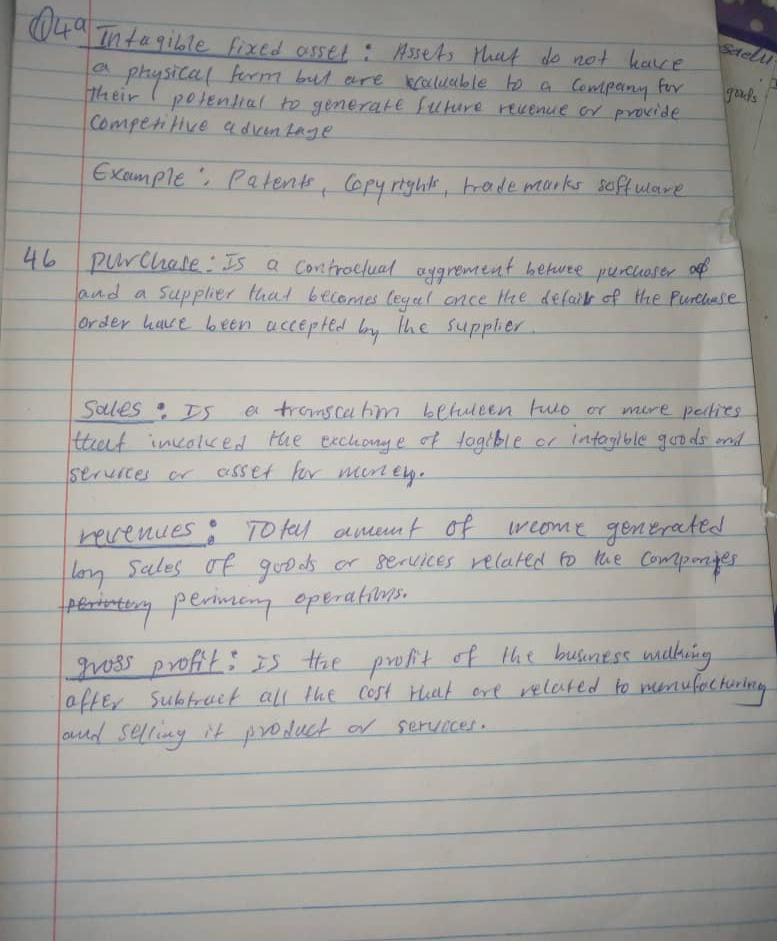 ① 4a Intagible fixed asset : Assets that do not have
a physical form but are valuable to a company for
their potential to generate future revenue or provide
competitive advantage
Example : Patents, Copyrights, trade marks software
4b purchase : Is a contractual aggrement betwee purchaser
and a supplier that becomes legal once the details of the Purchase
order have been accepted by the supplier.
Sales : Is a transcation between two or more parties
that involved the exchange of tagible or intagible goods and
services or asset for money.
revenues : Total amount of income generated
by sales of goods or services related to the companies
perimary operations.
gross profit : Is the profit of the business making
after subtract all the cost that are related to menufacturing
and selling it product or services.
goods